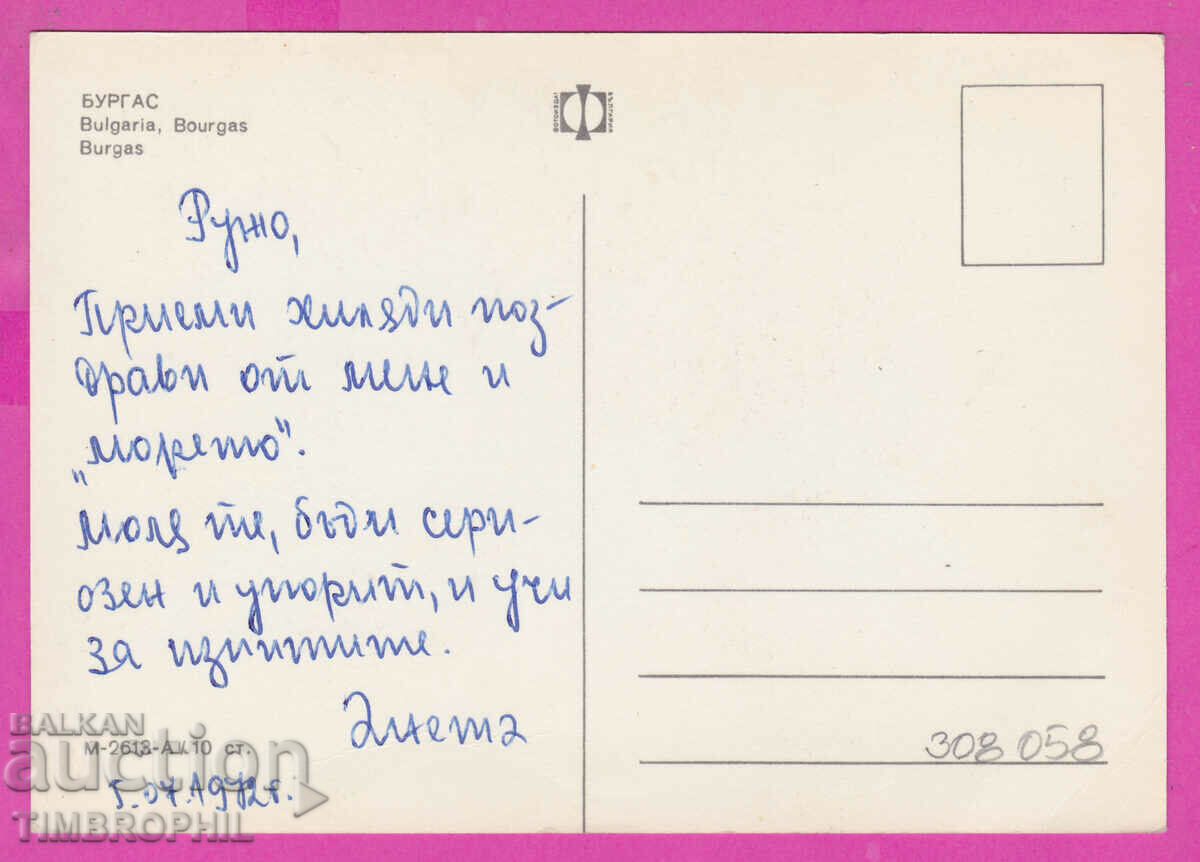 БУРГАС
Bulgaria, Bourgas
Burgas
ФОТОИЗДАТ
БЪЛГАРИЯ
Ружо,
Приеми хиляди поз-
драви от мене и
„морето“.
Моля те, бъди сери-
озен и упорит, и учи
за изпитите.
Анета
М-2613-А 10 ст.
5.07.1972г.
308 058
BALKAN
auction
TIMBROPHIL